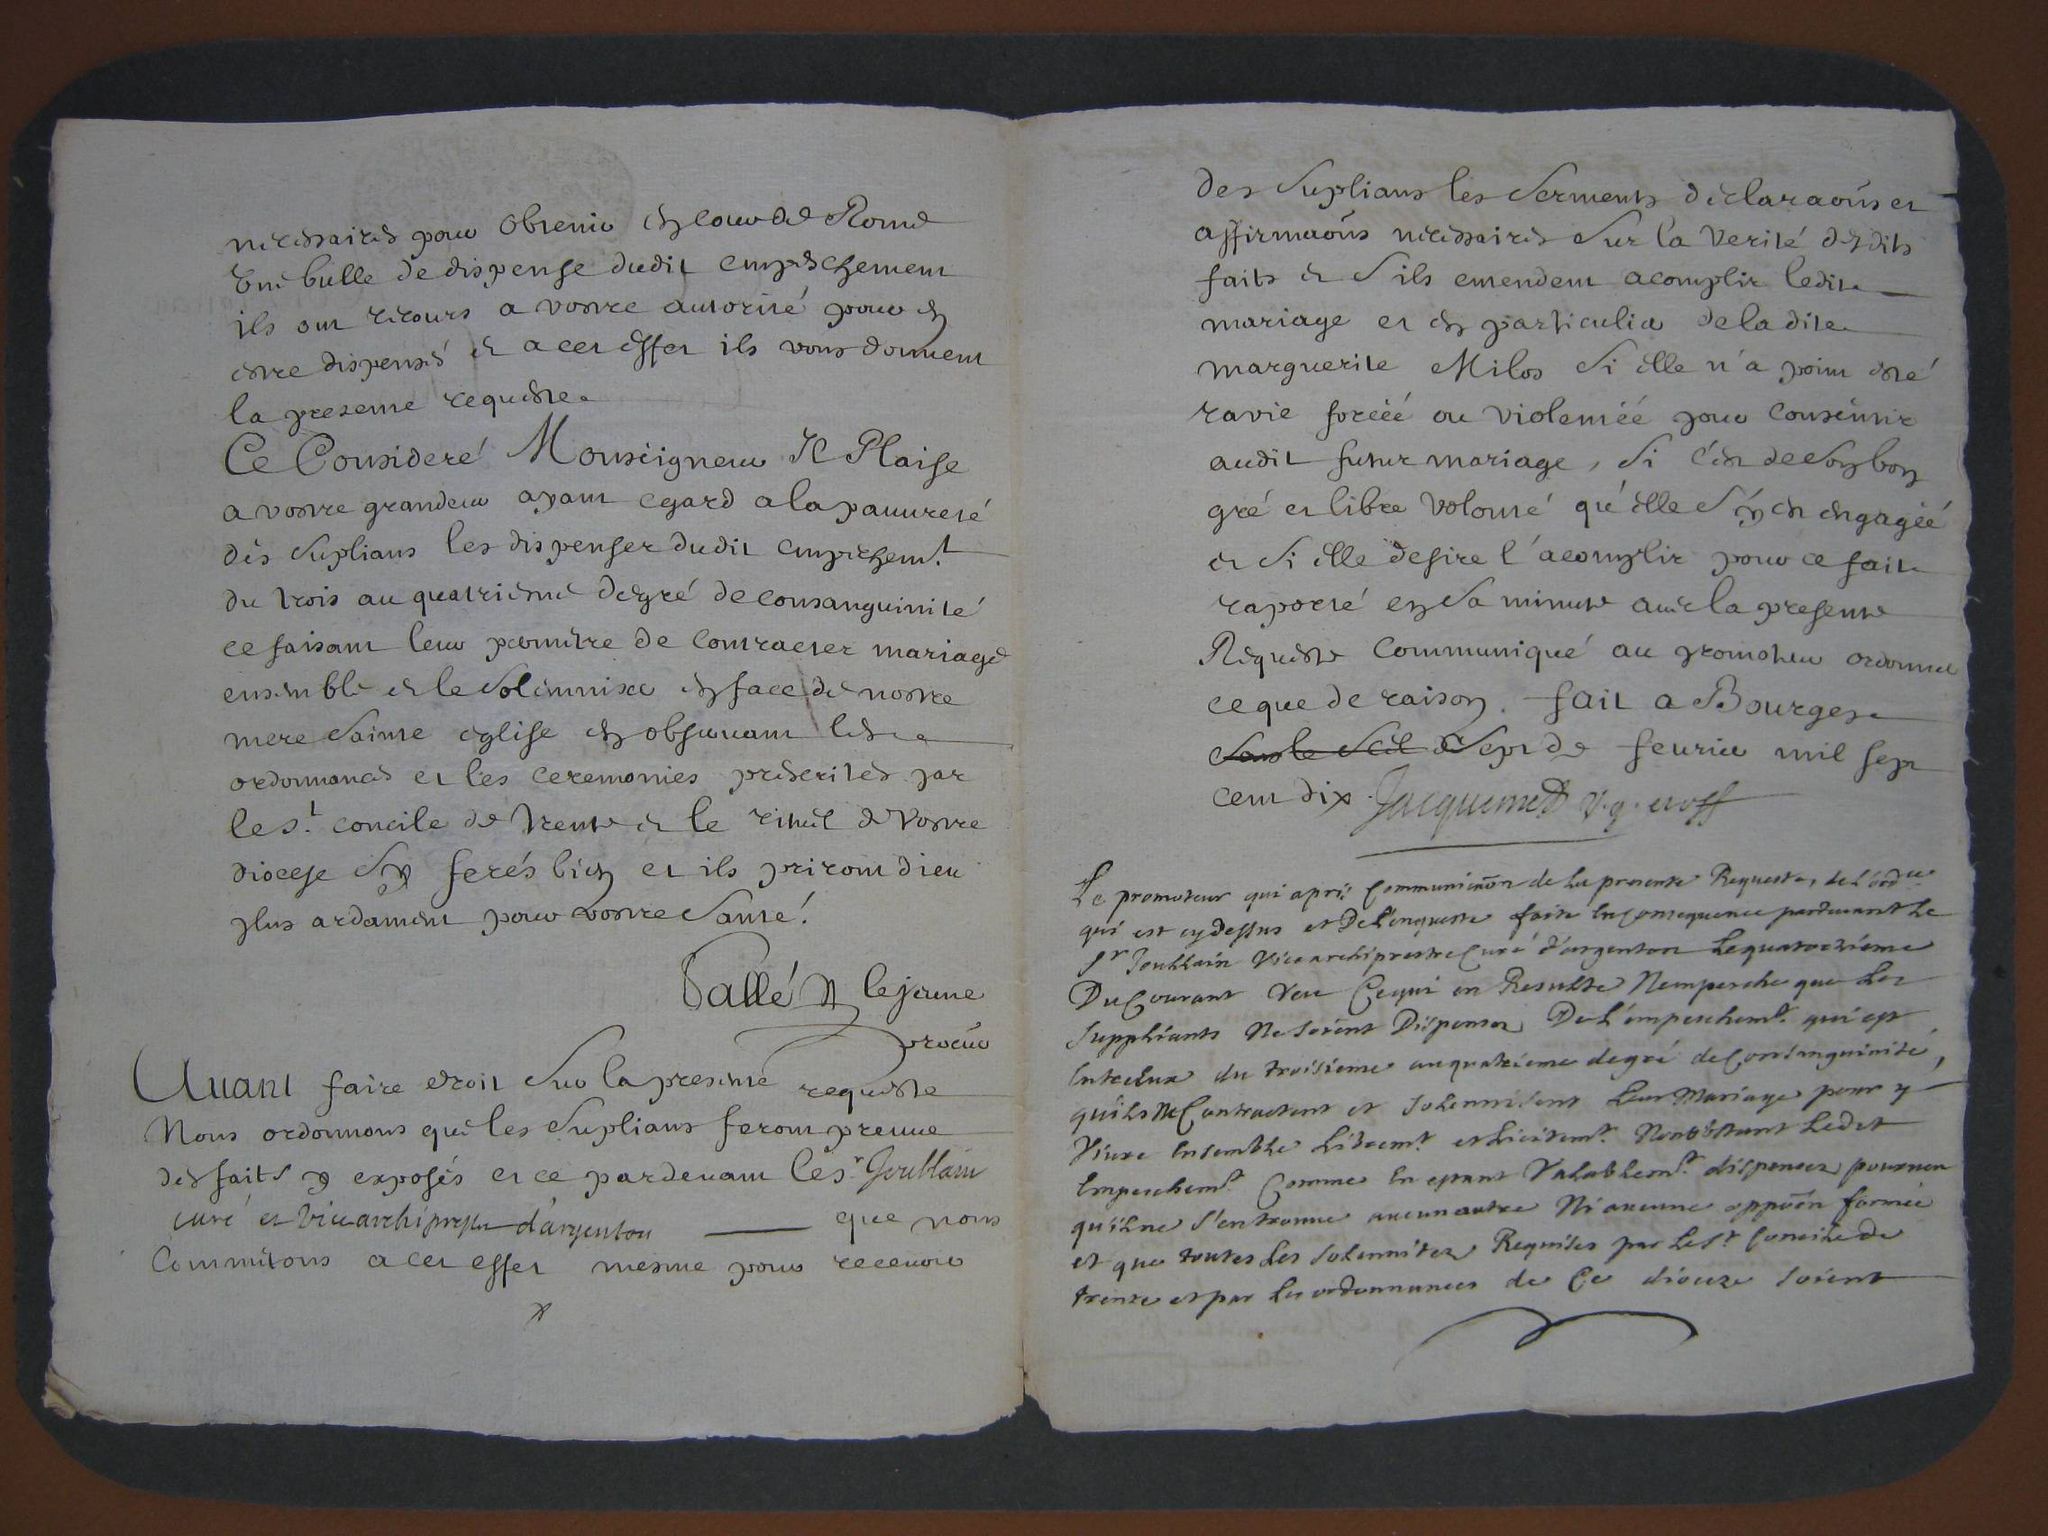 necessaires pour obtenir en cour de Rome
une bulle de dispense dudit empeschement
ils ont recours a vostre autorité pour en
estre dispensés et a cet effet ils vous donnent
la presente requeste
Ce Consideré Monseigneur Il Plaise
a vostre grandeur ayant egard a la pauvreté
des suplians les dispenser dudit empeschem.t
du trois au quatriesme degré de consanguinité
ce faisant leur permettre de contracter mariage
ensemble et le solemniser en face de nostre
mere sainte eglise en observant les
ordonnances et les ceremonies prescrites par
le s.t concile de trente et le rituel de vostre
diocese sy ferés bien et ils priront dieu
plus ardament pour vostre santé.
Vallé lejeune
procur
Avant faire droit sur la presente requeste
Nous ordonnons que les suplians feront preuve
des faits y exposés et ce pardevant le sr Joublain
curé et vicearchiprestre d'argenton que nous
commettons a cet effet mesme pour recevoir
des suplians les serments declaraõns et
affirmaõns necessaires sur la verité desdits
faits et s'ils entendent acomplir ledit
mariage et en particulier de ladite
marguerite Milos si elle n'a point esté
ravie forcéé ou violentéé pour consentir
audit futur mariage, si c'est de son bon
gré et libre volonté qu'elle s'y est engagéé
et si elle desire l'acomplir pour ce fait
raporté en sa minute avec la presente
Requeste communiqué au promoteur ordonner
ce que de raison. fait a Bourges
sous le scel sept de fevrier mil sept
cent dix. Jacquemet v.g. et off
Le promoteur qui apres communicaõn de la presente Requeste, de l'ordce
qui est cy dessus et De l'enqueste faite en consequence pardevant le
sr Joublain vice archiprestre curé d'argenton le quatorzieme
Du courant veu ce qui en Resulte N'empesche que les
suppliants ne soient Dispensez De l'empeschemt. qui est
entr'eux du troisieme au quatrieme degré de consanguinité,
qu'ils ne contractent et solennisent leur Mariage pour y
vivre ensemble librem.t et licitem.t Nonobstant ledit
empeschem.t comme en estant valablem.t dispensez pourveu
qu'il ne s'en trouve aucun autre Ni aucune oppõon formée
et que toutes les solennitez Requises par le s.t concile de
trente et par les ordonnances de ce dioceze soient